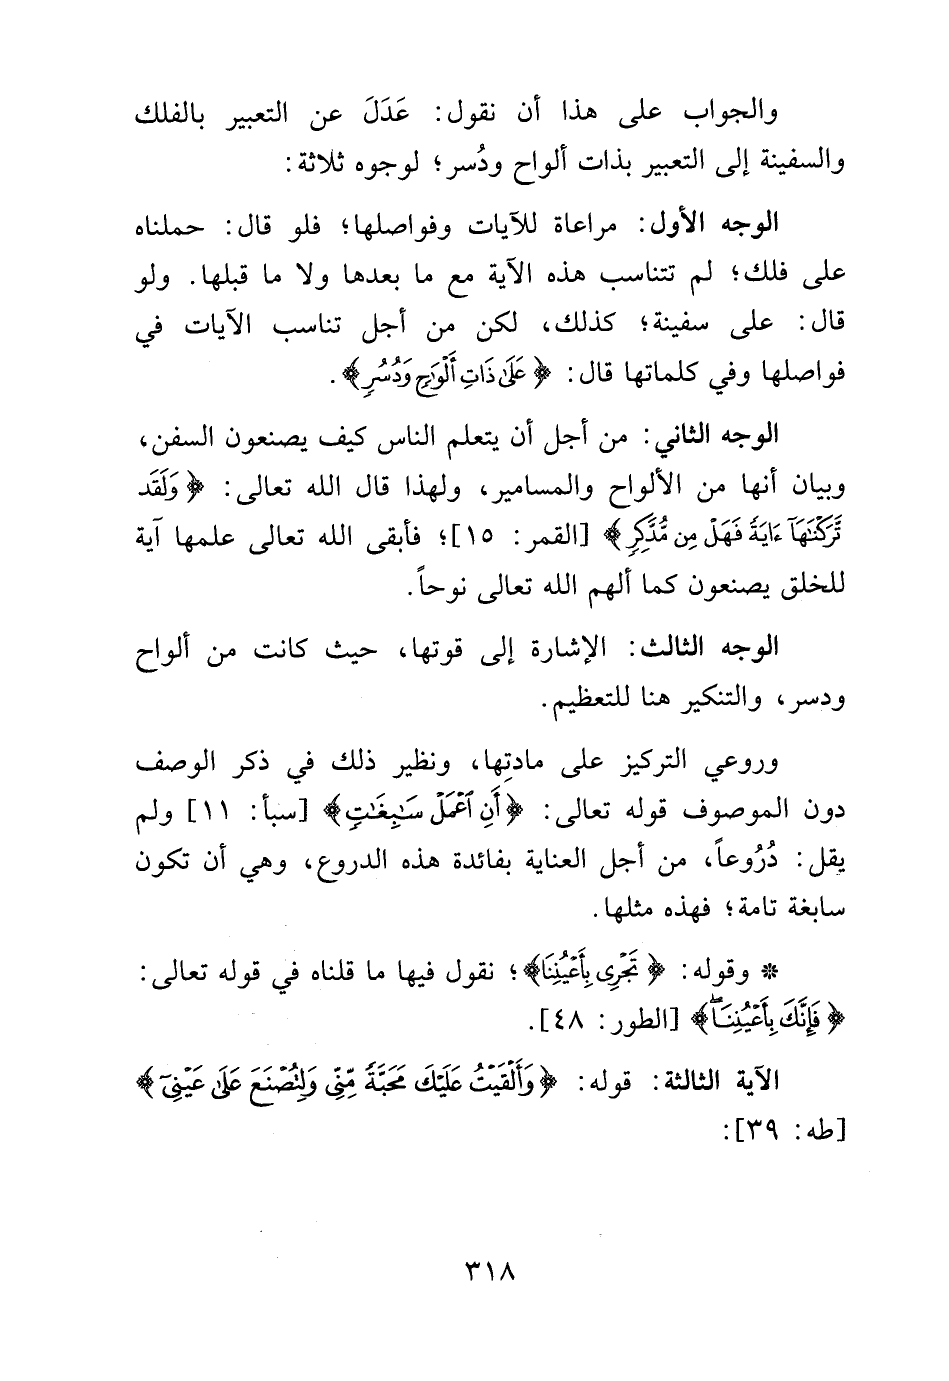 والجواب على هذا أن نقول: عَدَلَ عن التعبير بالفلك
والسفينة إلى التعبير بذات ألواح ودُسر؛ لوجوه ثلاثة:
الوجه الأول: مراعاة للآيات وفواصلها؛ فلو قال: حملناه
على فلك؛ لم تتناسب هذه الآية مع ما بعدها ولا ما قبلها. ولو
قال: على سفينة؛ كذلك، لكن من أجل تناسب الآيات في
فواصلها وفي كلماتها قال: ﴿عَلَىٰ ذَاتِ أَلْوَٰحٍ وَدُسُرٍ﴾.
الوجه الثاني: من أجل أن يتعلم الناس كيف يصنعون السفن،
وبيان أنها من الألواح والمسامير، ولهذا قال الله تعالى: ﴿وَلَقَد
تَّرَكْنَٰهَآ ءَايَةً فَهَلْ مِن مُّدَّكِرٍ﴾ [القمر: ١٥]؛ فأبقى الله تعالى علمها آية
للخلق يصنعون كما ألهم الله تعالى نوحاً.
الوجه الثالث: الإشارة إلى قوتها، حيث كانت من ألواح
ودسر، والتنكير هنا للتعظيم.
وروعي التركيز على مادتِها، ونظير ذلك في ذكر الوصف
دون الموصوف قوله تعالى: ﴿أَنِ ٱعْمَلْ سَٰبِغَٰتٍ﴾ [سبأ: ١١] ولم
يقل: دُرُوعاً، من أجل العناية بفائدة هذه الدروع، وهي أن تكون
سابغة تامة؛ فهذه مثلها.
* وقوله: ﴿تَجْرِى بِأَعْيُنِنَا﴾؛ نقول فيها ما قلناه في قوله تعالى:
﴿فَإِنَّكَ بِأَعْيُنِنَاۖ﴾ [الطور: ٤٨].
الآية الثالثة: قوله: ﴿وَأَلْقَيْتُ عَلَيْكَ مَحَبَّةً مِّنِّى وَلِتُصْنَعَ عَلَىٰ عَيْنِىٓ﴾
[طه: ٣٩]:
٣١٨